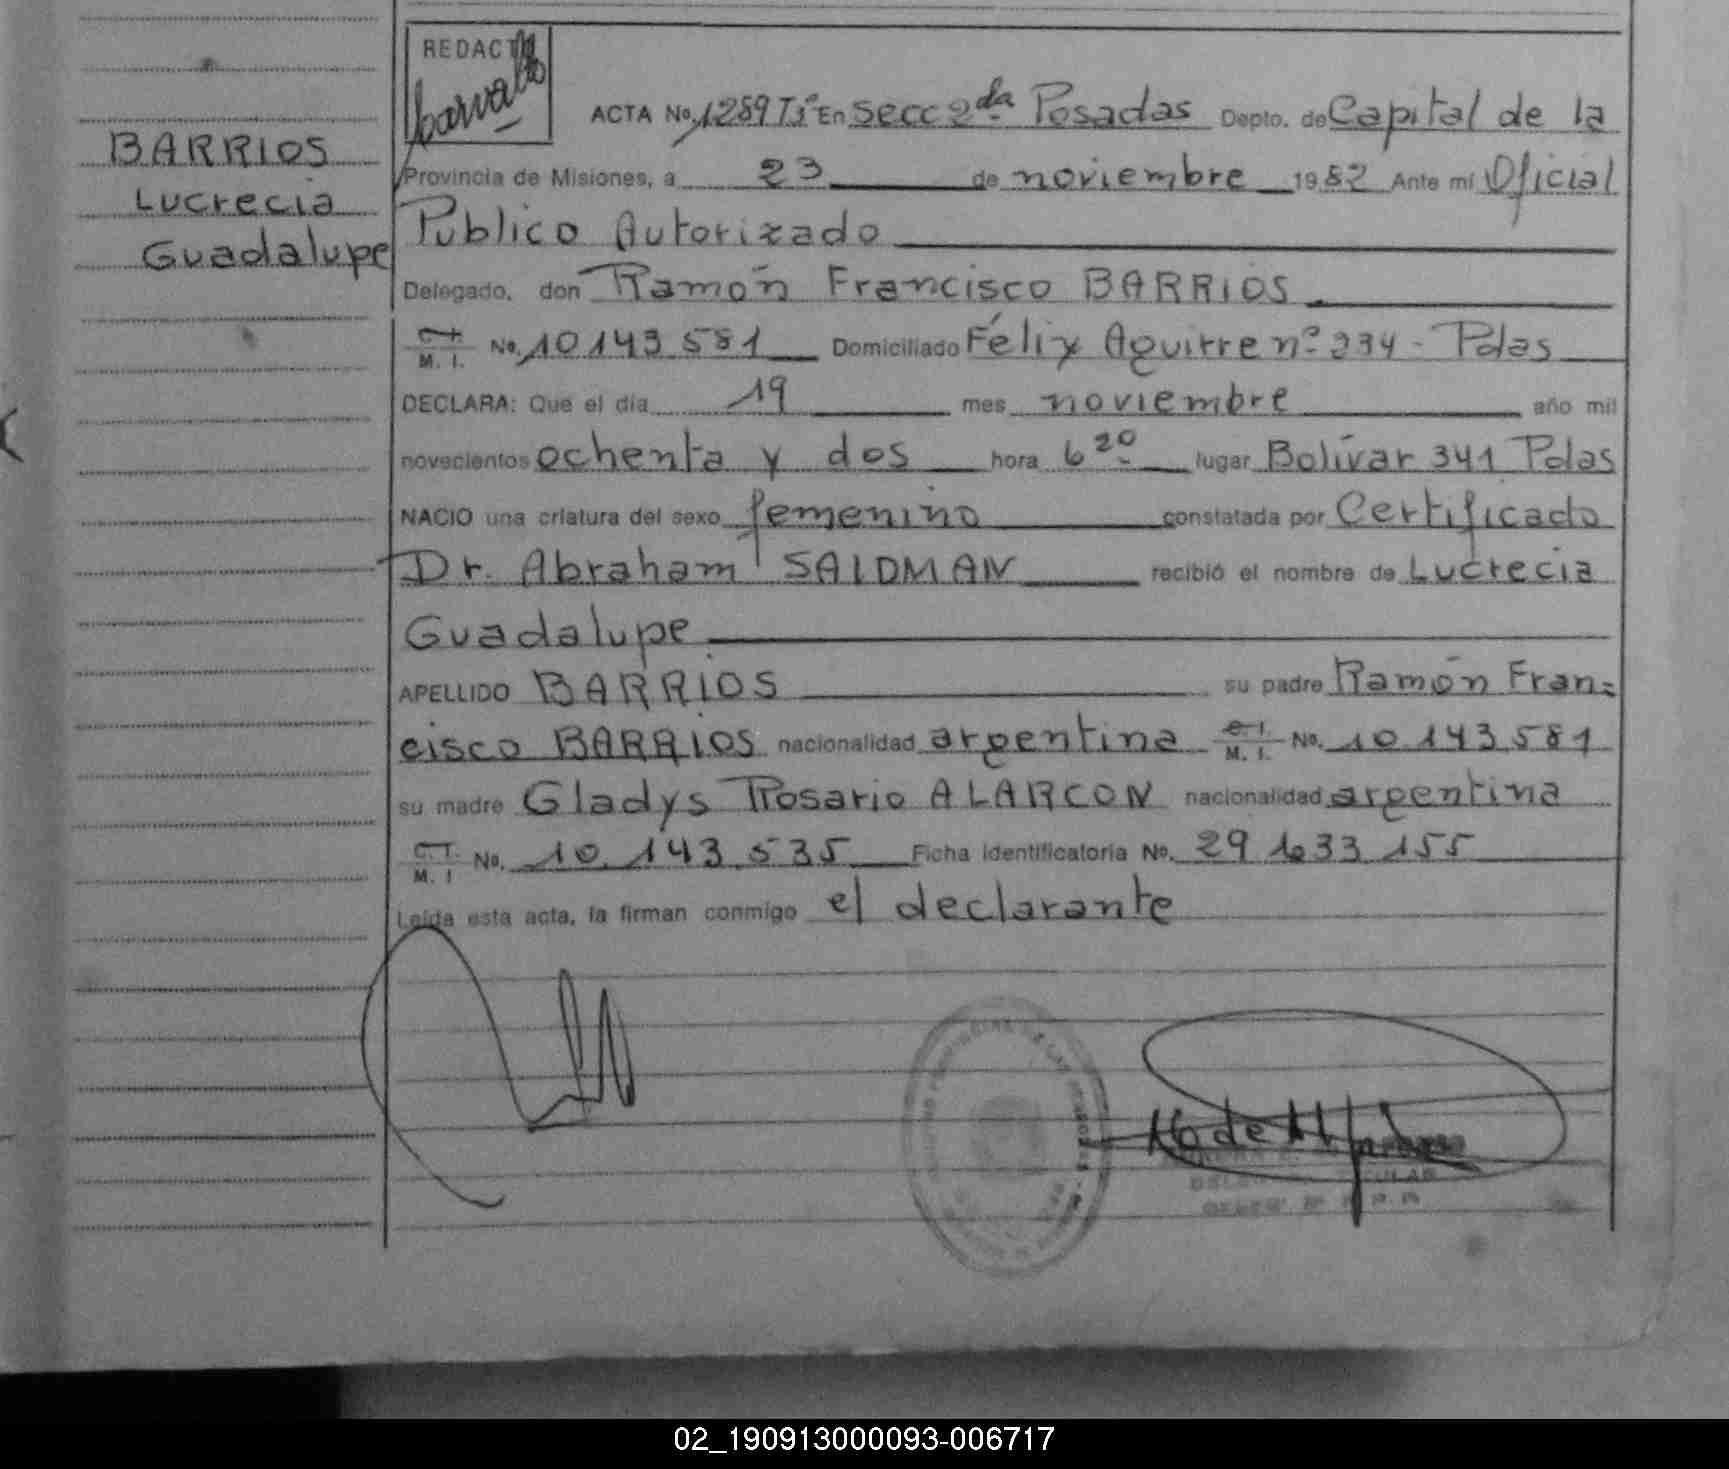 REDACTÓ
barvalo
ACTA No. 1289 Tº3 En Secc 2da Posadas Depto. de Capital de la
Provincia de Misiones, a 23 de noviembre 1982 Ante mi Oficial
Publico Autorizado
Delegado, don Ramón Francisco BARRIOS
C.I. M. I. No. 10143581 Domiciliado Félix Aguirre nº 234 - Pdas
DECLARA: Que el día 19 mes noviembre año mil
novecientos ochenta y dos hora 6 20 lugar Bolívar 341 Pdas
NACIO una criatura del sexo femenino constatada por Certificado
Dr. Abraham SALDMAN recibió el nombre de Lucrecia
Guadalupe
APELLIDO BARRIOS su padre Ramón Fran=
cisco BARRIOS nacionalidad argentina C.I. M. I. No. 10.143.581
su madre Gladys Rosario ALARCON nacionalidad argentina
C.I. M. I No. 10.143.535 Ficha Identificatoria No. 29 633 155
Leída esta acta, la firman conmigo el declarante
BARRIOS
Lucrecia
Guadalupe
02_190913000093-006717